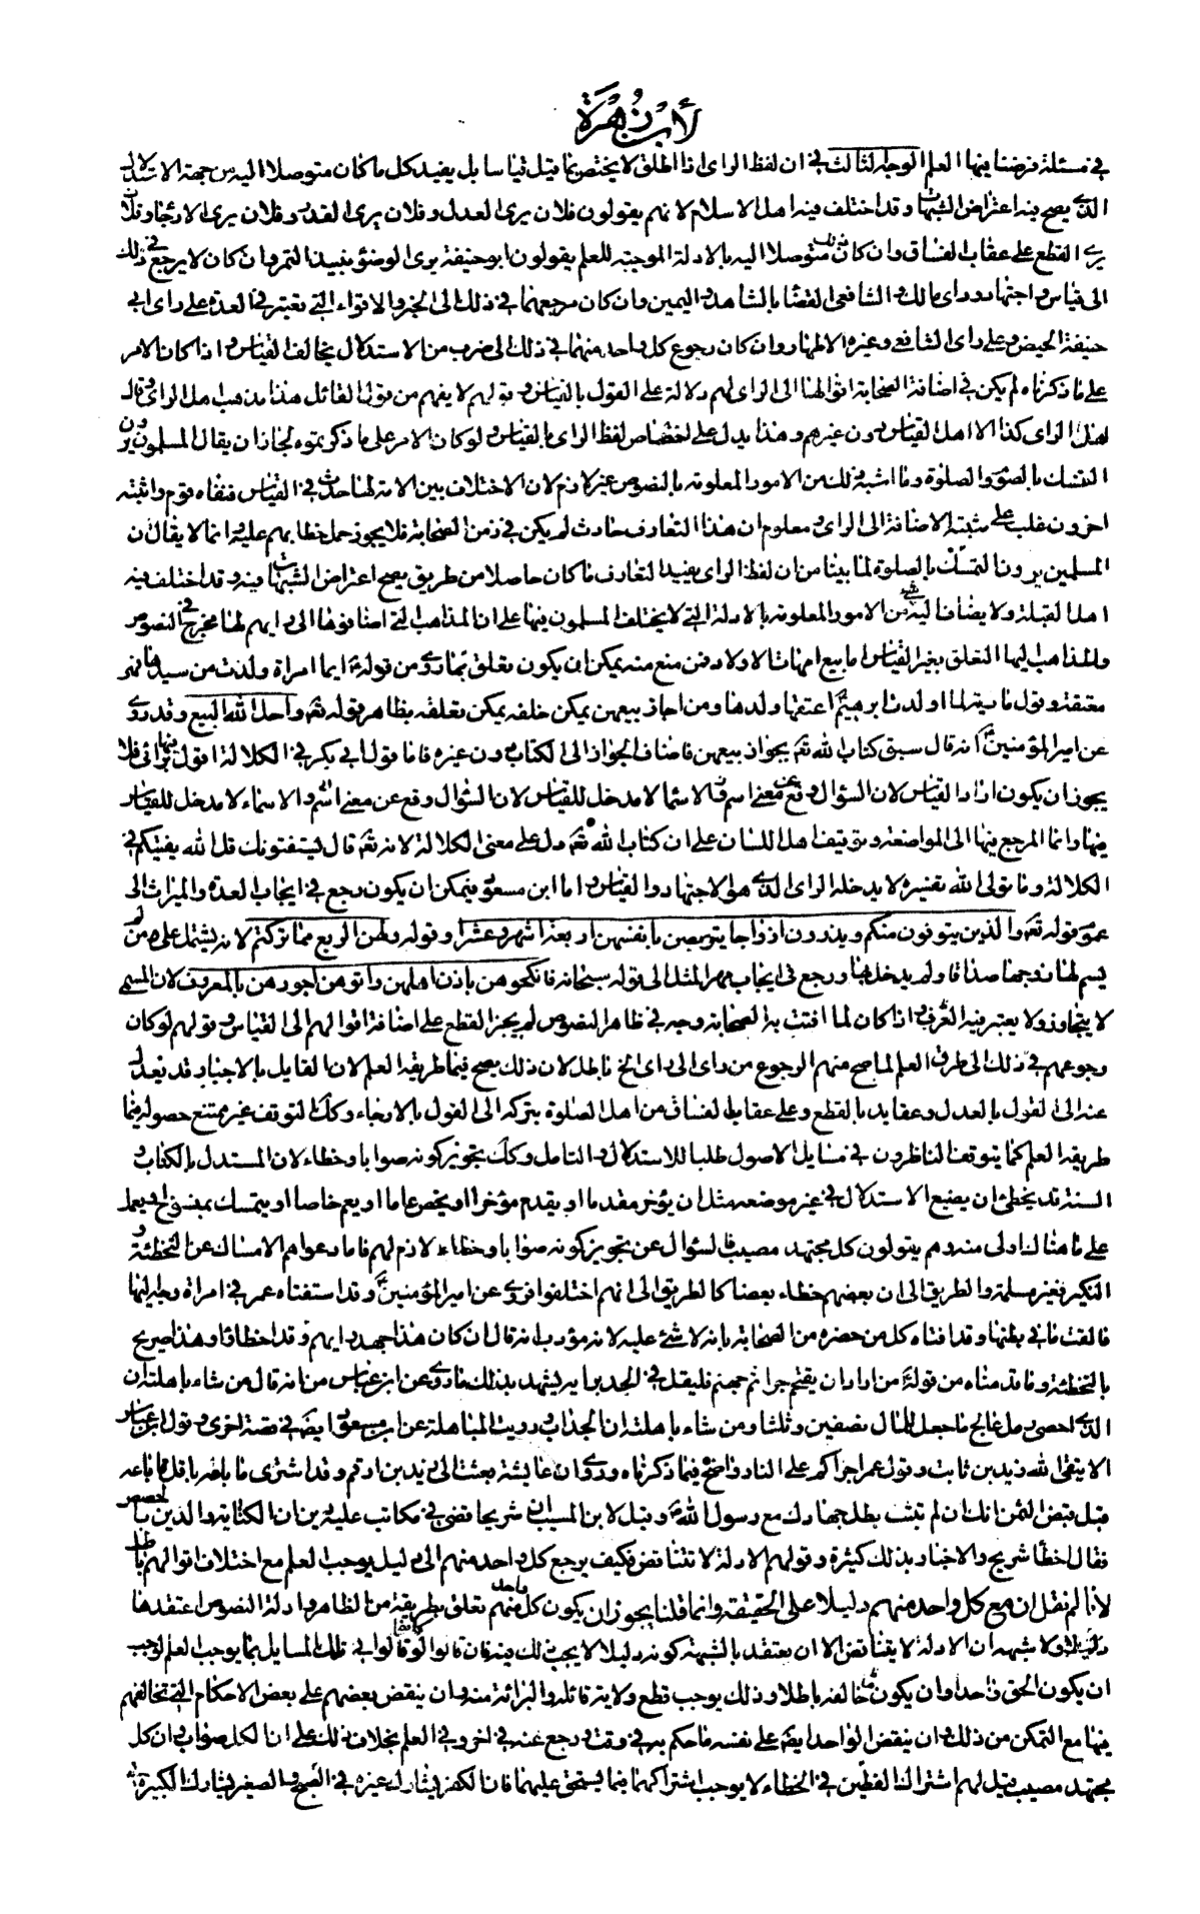 لأبن زهرة
في مسئلة فرضنا فيها العلم الوجه الثالث في ان لفظ الراى اذا اطلق لا يختص بما قيل قياسا بل يفيد كل ما كان متوصلا اليه من جهة الاستدلال
الذي يصح فيه اعتراض الشبهات وقد اختلف فيه اهل الاسلام لانهم يقولون فلان يرى العدل وفلان يرى القدر وفلان يرى الارجاء وفلان
يرى القطع على عقاب الفساق وان كان ذلك متوصلا اليه بالادلة الموجبة للعلم يقولون ابو حنيفة يرى الوضوء بنبيذ التمر وان كان لا يرجع في ذلك
الى قياس واجتهاد وراى مالك والشافعي القضا بالشاهد واليمين وان كان مرجعهما في ذلك الى الخبر والاقراء التي تعتبر في العدة على راى ابي
حنيفة الحيض وعلى راى الشافعي وغيره الاطهار وان كان رجوع كل واحد منهما في ذلك الى ضرب من الاستدلال يخالف القياس واذا كان الامر
على ما ذكرناه لم يكن في اضافة الصحابة اقوالها الى الراى لهم دلالة على القول بالقياس وقولهم لا يفهم من قول القائل هذا مذهب اهل الراى وقال
اهل الراى كذا الا اهل القياس دون غيرهم وهذا يدل على اختصاص لفظ الراى بالقياس ولو كان الامر على ما ذكرتموه لجاز ان يقال المسلمون يرون
التمسك بالصوم والصلوة وما اشبه ذلك من الامور المعلومة بالنصوص غير لازم لان الاختلاف بين الامة لما حدث في القياس فنفاه قوم واثبته
اخرون غلب على مثبته الاضافة الى الراى ومعلوم ان هذا التعارف حادث لم يكن في زمن الصحابة فلا يجوز حمل خطابهم عليه وانما لا يقال ان
المسلمين يرون التمسك بالصلوة لما بينا من ان لفظ الراى يفيد التعارف ما كان حاصلا من طريق يصح اعتراض الشبهات فيه وقد اختلف فيه
اهل القبلة ولا يضاف اليه شيء من الامور المعلومة بالادلة التي لا يختلف المسلمون فيها على ان المذاهب التي اضافوها الى رايهم لها مخرج في النصوص
والمذاهب اليها التعلق بغير القياس اما بيع امهات الاولاد فمن منع منه يمكن ان يكون تعلق بما روى من قوله ايما امراة ولدت من سيدها فهي
معتقة وقول مارية لما اولدت ابرهيم اعتقها ولدها ومن اجاز بيعهن يمكن خلفه يمكن تعلقه بظاهر قوله تعه واحل الله البيع وقد روى
عن امير المؤمنين انه قال سبق كتاب الله تعه بجواز بيعهن فاضاف الجواز الى الكتاب دون غيره فاما قول ابي بكر في الكلالة اقول فيها برائى فلا
يجوز ان يكون اراد القياس لان السؤال وقع عن معنى اسم والاسما لا مدخل للقياس لان السؤال وقع عن معنى اسم والاسماء لا مدخل للقياس
فيها وانما المرجع فيها الى المواضعة وتوقيف اهل اللسان على ان كتاب الله تعه دل على معنى الكلالة لانه تعه قال يستفتونك قل الله يفتيكم في
الكلالة وما تولى الله تفسيره لا يدخله الراى الذي هو الاجتهاد والقياس واما ابن مسعود فيمكن ان يكون رجع في ايجاب العدة والميراث الى
عموم قوله تعه والذين يتوفون منكم ويذرون ازواجا يتربصن بانفسهن اربعة اشهر وعشرا وقوله ولهن الربع مما تركتم لانه يشتمل على من لم
يسم لها زوجها صداقا ولم يدخل بها ورجع في ايجاب مهر المثل الى قوله سبحانه فانكحوهن باذن اهلهن واتوهن اجورهن بالمعروف لان المسمى
لا يتجاوز ولا يعتبر فيه العرف واذا كان لما افتت به الصحابة وجه في ظاهر النصوص لم يجز القطع على اضافة اقوالهم الى القياس وقولهم لو كان
رجوعهم في ذلك الى طرق العلم لما صح منهم الرجوع من راى الى راى الخ باطل لان ذلك يصح فيما طريقه العلم لان القايل بالاجبار قد يعدل
عنه الى القول بالعدل وعقايد بالقطع وعلى عقاب الفساق من اهل الصلوة يتركه الى القول بالارجاء وكذلك التوقف غير ممتنع حصوله فيما
طريقه العلم كما يتوقف الناظرون في مسايل الاصول طلبا للاستدلال والتامل وكذلك تجويز كونه صوابا وخطاء لان المستدل بالكتاب و
السنة قد يخطئ ان يضع الاستدلال في غير موضعه مثل ان يؤخر مقدما او يقدم مؤخرا او يخص عاما او يعم خاصا او يتمسك بمنسوخ او يعمل
على ما هناك اولى منه وهم يقولون كل مجتهد مصيب فالسؤال عن تجويز كونه صوابا وخطاء لازم لهم فاما دعواهم الامساك عن التخطئة و
النكير فغير مسلمة والطريق الى ان بعضهم خطاء بعضا كالطريق الى انهم اختلفوا فروى عن امير المؤمنين وقد استفتاه عمر في امراة وجه اليها
فالقت ما في بطنها وقد افتاه كل من حضره من الصحابة بانه لا شئ عليه لانه مؤدب انه قال ان كان هذا جهد رايهم فقد اخطاؤا وهذا صريح
بالتخطئة وما قدمناه من قوله من اراد ان يقتحم جراثيم جهنم فليقل في الجد برايه يشهد بذلك ما روى عن ابن عباس من انه قال من شاء باهلته ان
الذي احصى رمل عالج ما جعل للمال نصفين وثلثا ومن شاء باهلته ان الجد اب ورويت المباهلة عن ابن مسعود ايضا في قصة اخرى وقول ابن عباس
الا يتقى الله زيد بن ثابت وقول عمر اجراكم على النار واضح فيما ذكرناه وروى ان عايشة بعثت الى زيد بن ارقم وقد اشترى ما باعه باقل مما باعه
قبل قبض الثمن انك ان لم تتب بطل جهادك مع رسول الله وقيل لابن المسيب ان شريحا قضى في مكاتب عليه دين ان الكتابة والدين بالحصص
فقال اخطأ شريح والاخبار بذلك كثيرة وقولهم الادلة لا تتناقض فكيف يرجع كل واحد منهم الى دليل يوجب العلم مع اختلاف اقوالهم باطل
لانا لم نقل ان مع كل واحد منهم دليلا على الحقيقة وانما قلنا يجوز ان يكون كل واحد منهم تعلق بطريقة من الظاهر وادلة النصوص اعتقدها
دليلا ولا شبهه ان الادلة لا يتناقض الا ان يعتقد بالشبهة كونه دليلا لا يجب ذلك فيه فان قالوا لو كانوا قالوا في تلك المسايل بما يوجب العلم لوجب
ان يكون الحق واحدا وان يكون ما خالفه باطلا وذلك يوجب قطع ولاية قائله والبرائة منه وان ينقض بعضهم على بعض الاحكام التي تخالفهم
فيها مع التمكن من ذلك وان ينقض الواحد ايضا على نفسه ما حكم به في وقت ورجع عنه في اخر وفي العلم بخلاف ذلك على ان الكل صواب وان كل
مجتهد مصيب قيل لهم اشتراك الفظين في الخطاء لا يوجب اشتراكهما فيما يستحق عليهما فان الكفر يشارك غيره في القبح والصغير يشارك الكبيرة